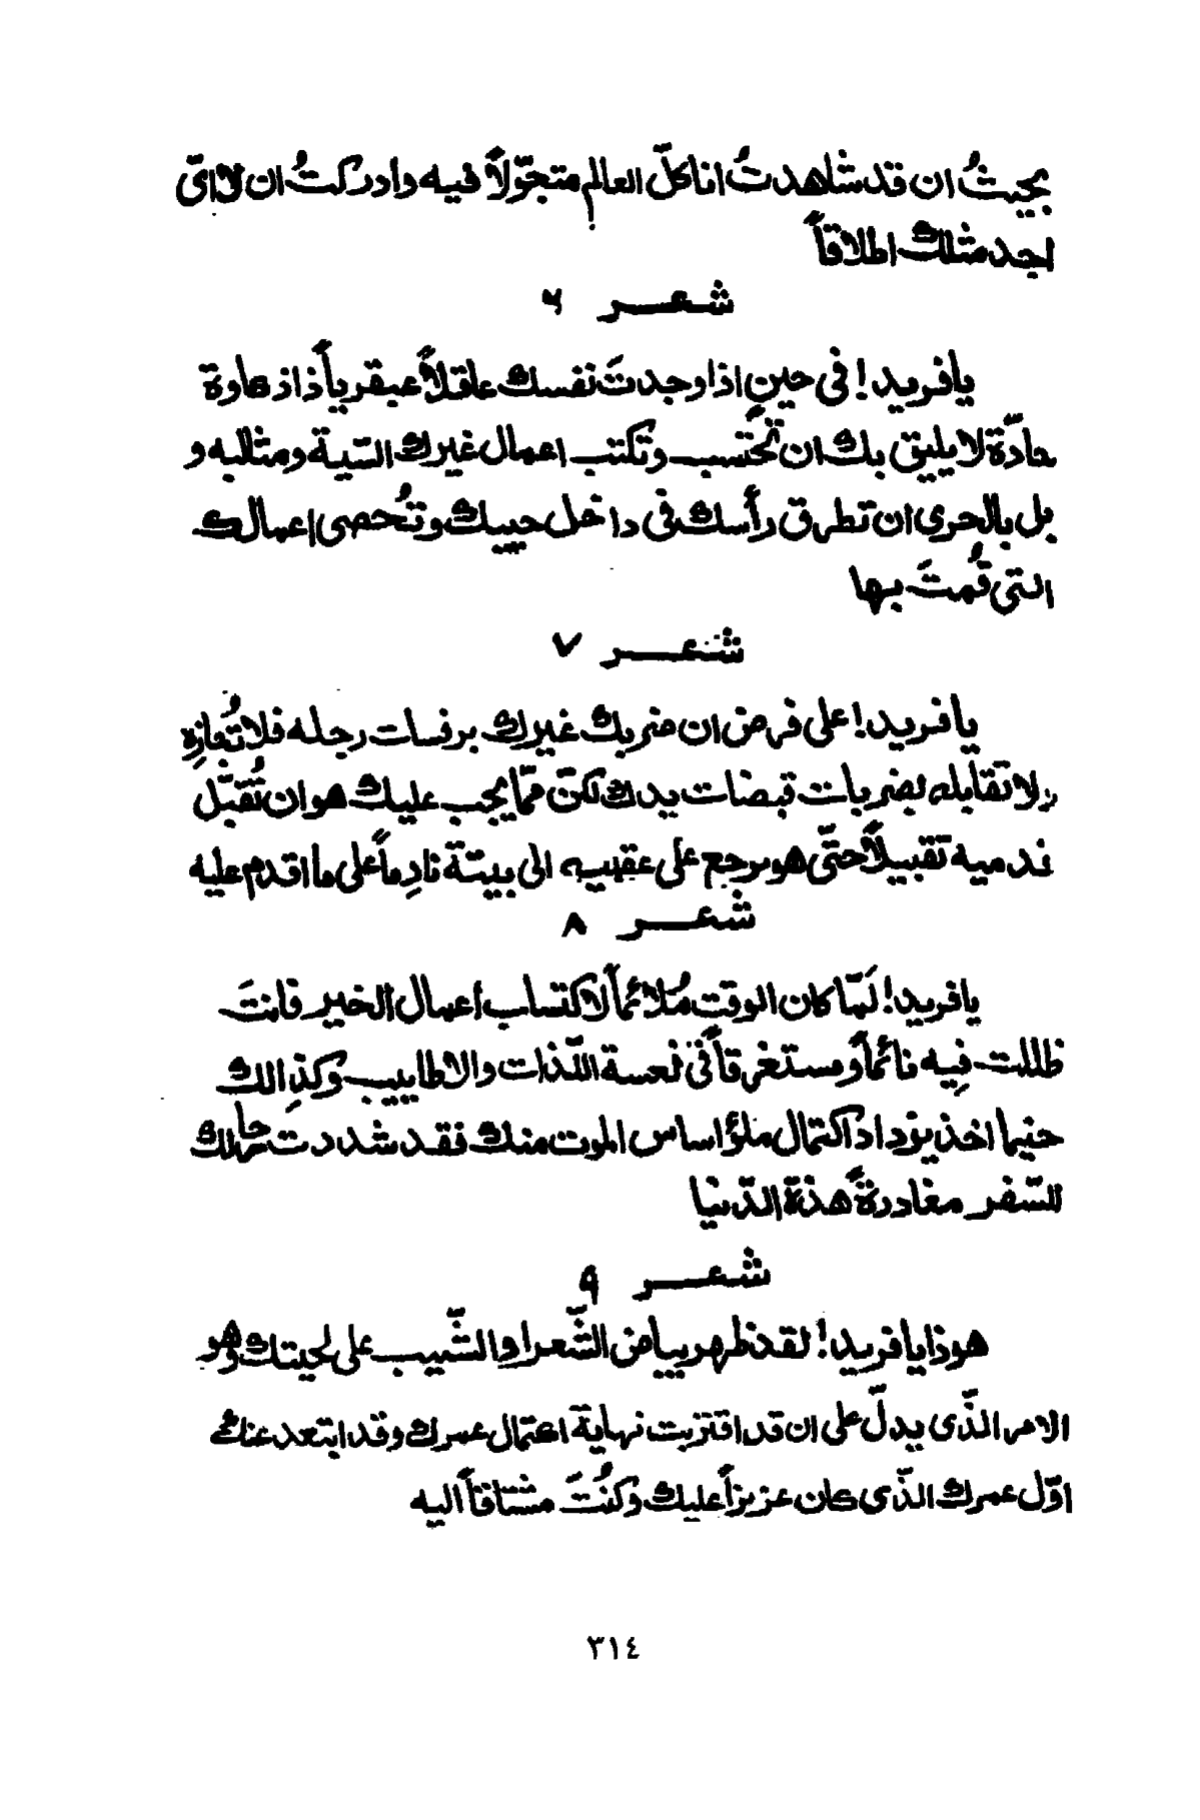 بحيثُ ان قد شاهدتُ انا كلّ العالم متجوّلاً فيه وأدركتُ ان لا انّي
اجد مثلك اطلاقاً
شعر ٦
يا فريد! فى حين اذا وجدتَ نفسك عاقلاً عبقرياً ذا ذكاوة
حادّة لا يليق بك ان تحتسب وتكتب اعمال غيرك السّية ومثالبه و
بل بالحرى ان تطرق رأسك فى داخل جيبك وتُحصى اعمالك
التى قُمتَ بها
شعر ٧
يا فريد! على فرض ان ضربك غيرك برفسات رجله فلا تُعازِه
ولا تقابله بضربات قبضات يدك لكنّ ممّا يجب عليك هو ان تُقبّل
قدميه تقبيلاً حتّى هو يرجع على عقبيه الى بيتة نادِماً على ما اقدم عليه
شعر ٨
يا فريد! لَمّا كان الوقت مُلائماً لاكتساب أعمال الخير فانتَ
ظللت فِيه نائماً ومستغرقاً فى نعسة اللّذات والاطاييب وكذِالك
حنيما اخذ يزداد اكتمال ملؤ اساس الموت منك فقد شددت رحالك
للسّفر مغادرةً هذة الدّنيا
شعر ٩
هوذا يا فريد! لقد ظهر بياض الشّعر او الشّيب على لحيتك وهو
الامر الذّى يدلّ على ان قد اقتربت نهاية اكتمال عمرك وقد ابتعد عنك
اوّل عمرك الذّى كان عزيزاً عليك وكُنتَ مشتاقاً اليه
٣١٤